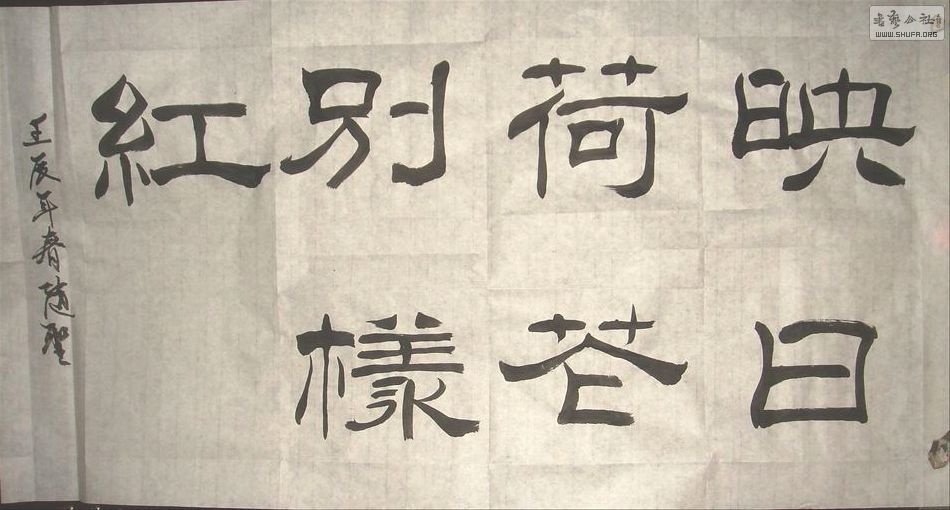 映日
荷花
別樣
紅
壬辰年春随聖
书艺公社
WWW.SHUFA.ORG